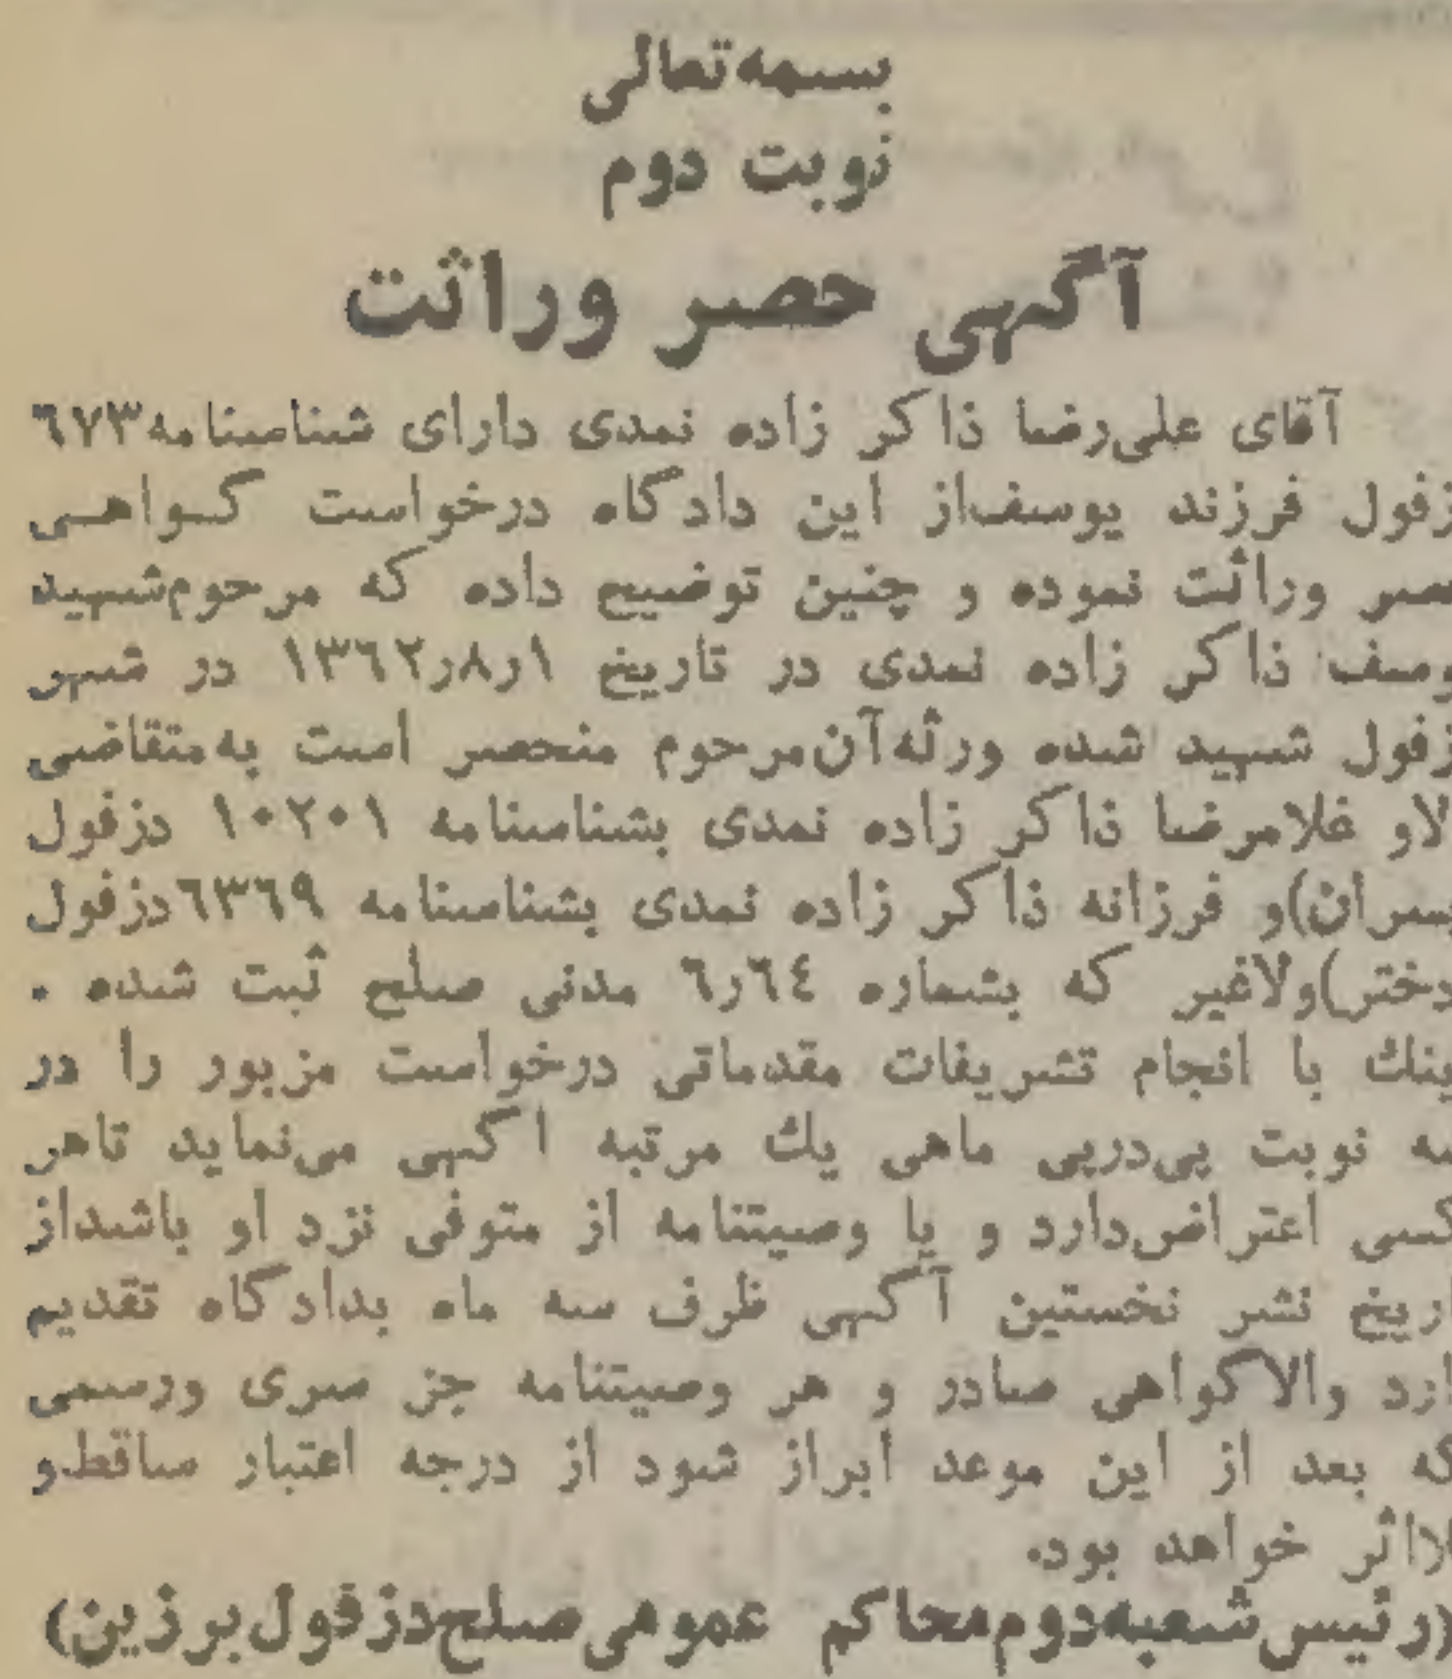 بسمه‌تعالی
نوبت دوم
آگهی حصر وراثت
آقای علی‌رضا ذاکر زاده نمدی دارای شناسنامه ٦٧٣
زفول فرزند یوسف‌از این دادگاه درخواست گواهی
صر وراثت نموده و چنین توضیح داده که مرحوم‌شهید
وسف ذاکر زاده نمدی در تاریخ ۱ر۸ر۱۳٦۲ در شهر
زفول شهید شده ورثه‌آن‌مرحوم منحصر است به‌متقاضی
لاو غلامرضا ذاکر زاده نمدی بشناسنامه ۱۰۲۰۱ دزفول
سران)و فرزانه ذاکر زاده نمدی بشناسنامه ٦۳٦۹دزفول
دختر)ولاغیر که بشماره ٦٤ر٦ مدنی صلح ثبت شده .
ینك با انجام تشریفات مقدماتی درخواست مزبور را در
سه نوبت پی‌درپی ماهی یك مرتبه اگهی می‌نماید تاهر
کسی اعتراض‌دارد و یا وصیتنامه از متوفی نزد او باشداز
اریخ نشر نخستین آگهی ظرف سه ماه بدادگاه تقدیم
ارد والاگواهی صادر و هر وصیتنامه جز سری ورسمی
که بعد از این موعد ابراز شود از درجه اعتبار ساقط‌و
لااثر خواهد بود.
(رئیس‌شعبه‌دوم‌محاکم عمومی‌صلح‌دزفول‌برزین)